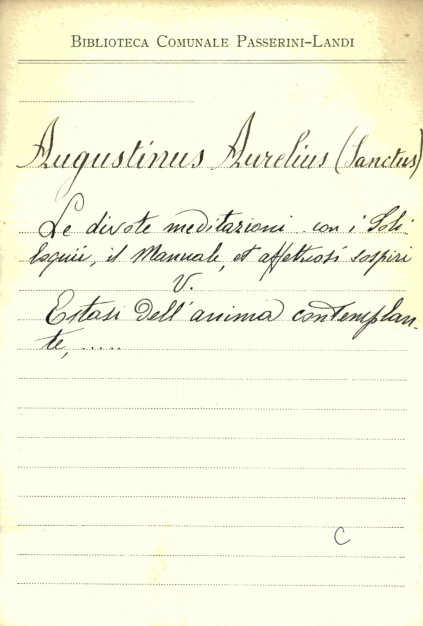 BIBLIOTECA COMUNALE PASSERINI-LANDI
Augustinus Aurelius (Sanctus)
Le divote meditazioni con i Soli
loquii, il Manuale, et affettuosi sospiri
V.
Estasi dell'anima contemplan-
te, .....
C